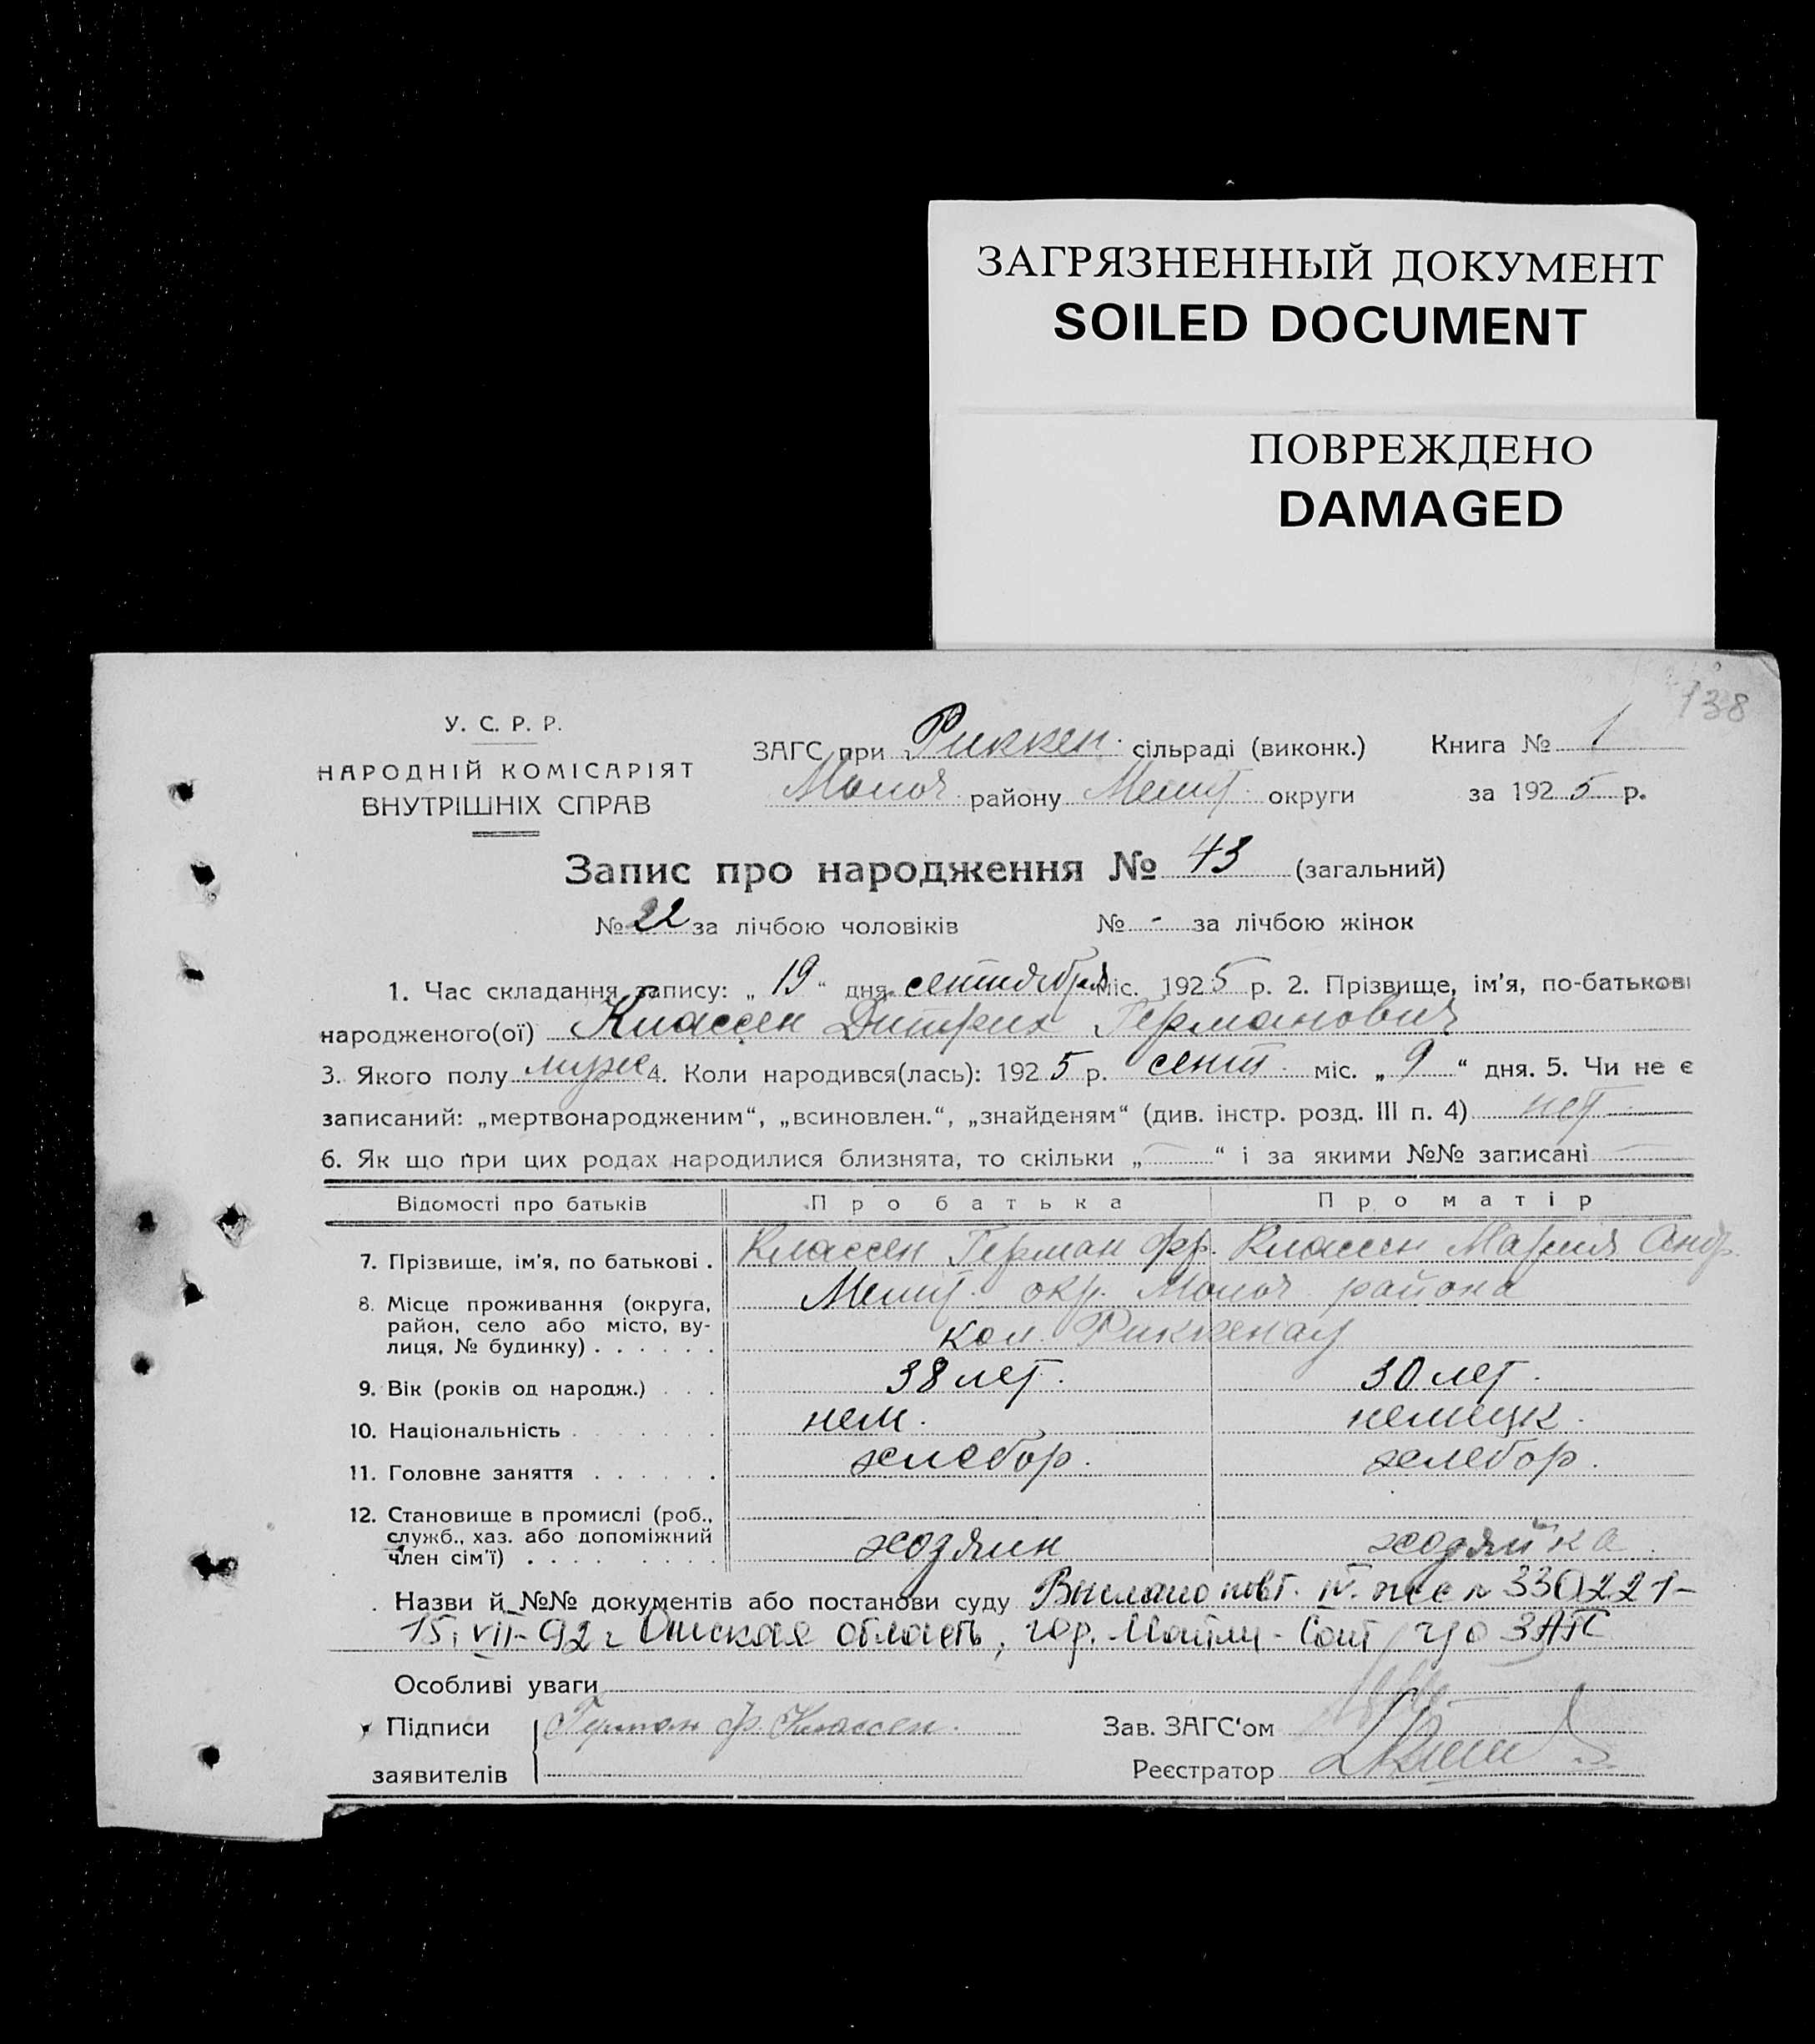 ЗАГРЯЗНЕННЫЙ ДОКУМЕНТ
SOILED DOCUMENT
ПОВРЕЖДЕНО
DAMAGED
138
У. С. Р. Р.
НАРОДНІЙ КОМІСАРІЯТ
ВНУТРІШНІХ СПРАВ
ЗАГС при Риккен. сільраді (виконк.) Книга № 1
Молоч. району Мелит. округи за 1925 р.
Запис про народження № 43 (загальний)
№ 22 за лічбою чоловіків № - за лічбою жінок
1. Час складання запису: „19“ дня сентября міс. 1925 р. 2. Прізвище, ім'я, по-батькові
народженого(ої) Классен Дитрих Германович
3. Якого полу муж 4. Коли народився(лась): 1925 р. сент. міс. „9“ дня. 5. Чи не є
записаний: „мертвонародженим“, „всиновлен.“, „знайденям“ (див. інстр. розд. III п. 4) нет
6. Як що при цих родах народилися близнята, то скільки „—“ і за якими №№ записані —
Відомості про батьків Про батька Про матір
7. Прізвище, ім'я, по батькові . Классен Герман Фр. Классен Мария Андр.
8. Місце проживання (округа, район, село або місто, вулиця, № будинку) . . . . . . Мелит. окр. Молоч. района
кол. Риккенау
9. Вік (років од народж.) . . . 38 лет. 30 лет.
10. Національність . . . . . . . нем. немецк.
11. Головне заняття . . . . . . хлебор. хлебор.
12. Становище в промислі (роб., служб., хаз. або допоміжний член сім'ї) . . . . . . . . . хозяин хозяйка
Назви й №№ документів або постанови суду Выслано повт. № 330221-
15. VII-92 г Ошская область, гор. Майлы-Сай, г/о ЗАГС
Особливі уваги
Підписи Герман Ф. Классен. Зав. ЗАГС‘ом
заявителів Реєстратор